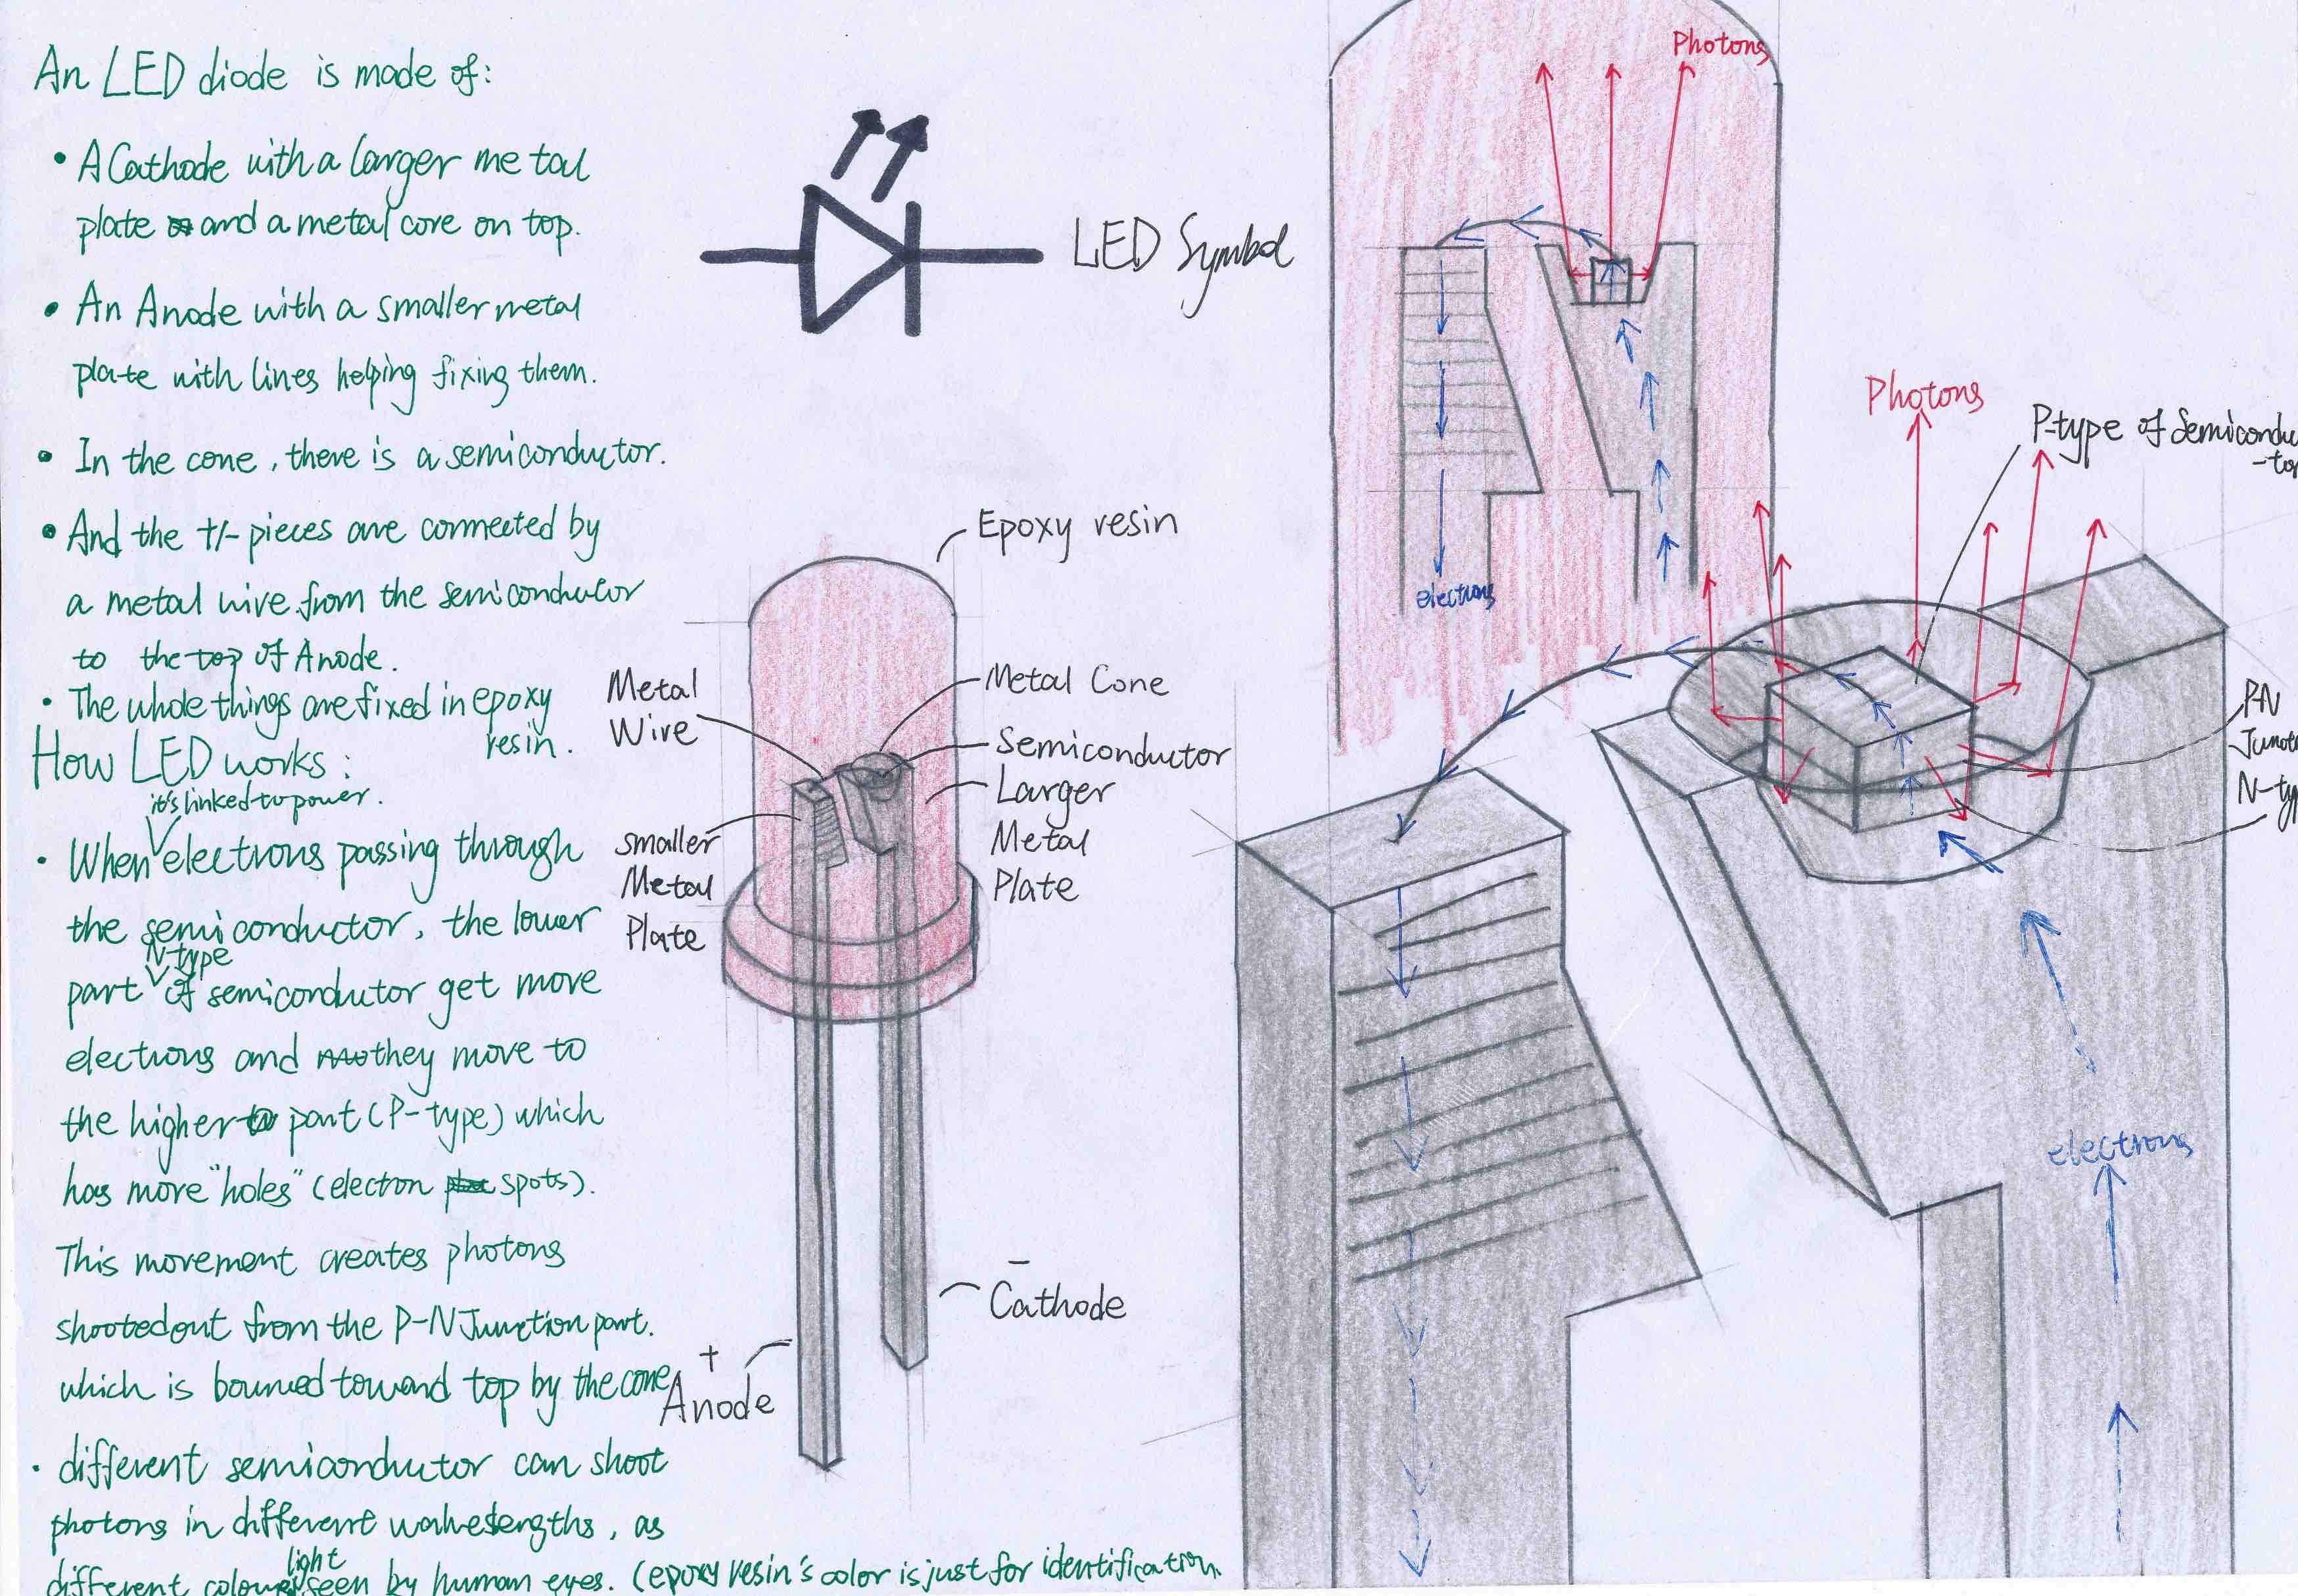 An LED diode is made of:
• A Cathode with a larger metal
plate and a metal core on top.
• An Anode with a smaller metal
plate with lines helping fixing them.
• In the cone, there is a semiconductor.
• And the +/- pieces are connected by
a metal wire from the semiconductor
to the top of Anode.
• The whole things are fixed in epoxy
resin.
How LED works:
it's linked to power.
• When electrons passing through
the semiconductor, the lower
N-type
part of semiconductor get more
electrons and they move to
the higher part (P-type) which
has more "holes" (electron spots).
This movement creates photons
shooted out from the P-N Junction part.
which is bounced toward top by the cone
• different semiconductor can shoot
photons in different wavelengths, as
light
different colour seen by human eyes. (epoxy resin's color is just for identification
LED Symbol
Epoxy resin
Metal
Wire
Metal Cone
Semiconductor
Larger
Metal
Plate
smaller
Metal
Plate
-
Cathode
+
Anode
Photons
electrons
Photons
P-type of Semiconduc
-tor
P-N
Junct
N-typ
electrons